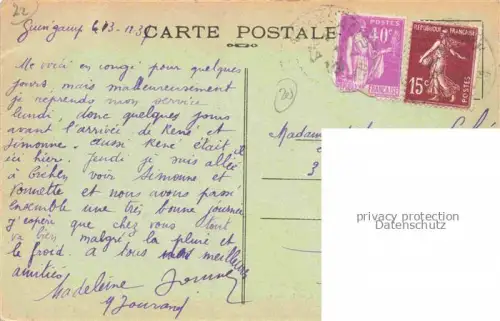 22
Guingamp 6.3-1937
CARTE POSTALE
Me voici en congé pour quelques
jours, mais malheureusement
je reprends mon service
lundi, donc quelques jours
avant l'arrivée de René et
Simonne. Aussi René était
ici hier. Jeudi je suis allée
à voir Simonne et
et nous avons passé
ensemble une très bonne journée
j'espère que chez vous tout
va bien malgré la pluie et
le froid. A tous meilleures
amitiés
Madeleine
POSTES
40c
FRANÇAISE
REPUBLIQUE FRANÇAISE
15c
POSTES
Madam
3
privacy protection
Datenschutz